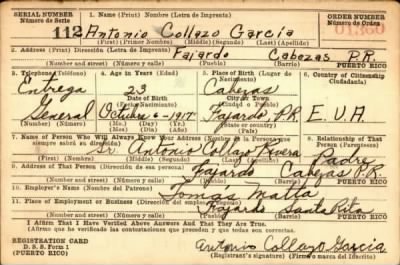 SERIAL NUMBER
Número de Serie
1. Name (Print) Nombre (Letra de Imprenta)
ORDER NUMBER
Número de Orden
112 Antonio Collazo García
(First) (Primer Nombre) (Middle) (Segundo) (Last) (Apellido)
2. Address (Print) Dirección (Letra de Imprenta)
Fajardo Cabezas P.R.
(Number and street) (Número y calle) (Town) (Pueblo) PUERTO RICO
3. Telephone (Teléfono)
4. Age in Years (Edad)
5. Place of Birth (Lugar de Nacimiento)
6. Country of Citizenship
Ciudadanía
Entrega 23 Cabezas
Date of Birth
Fecha de Nacimiento
City or Town
General October-6-1917 Fajardo, P.R. E.U.A
(Number) (Número) (Mo.) (Mes) (Day) (Día) (Yr.) (Año) (State) (País)
7. Name of Person Who Will Always Know Your Address
siempre sabrá su dirección)
8. Relationship of That Person
Antonio Collazo Rivera Padre
(First) (Middle) (Segundo) (Last) (Apellido)
9. Address of That Person (Dirección de esa persona)
Fajardo Cabezas P.R.
(Number and street) (Número y calle) (Town) (Pueblo) PUERTO RICO
10. Employer's Name (Nombre del Patrono)
Tomas Matta
11. Place of Employment or Business (Dirección del empleo)
Fajardo Santa Rita
(Number and street) (Número y calle) (Town) (Pueblo) PUERTO RICO
I Affirm That I Have Verified Above Answers And That They Are True.
Afirmo que he verificado las contestaciones que preceden y que todas son correctas.
REGISTRATION CARD
D. S. S. Form 1
(PUERTO RICO)
Antonio Collazo Garcia
(Registrant's signature) (Firma o marca del Inscrito)